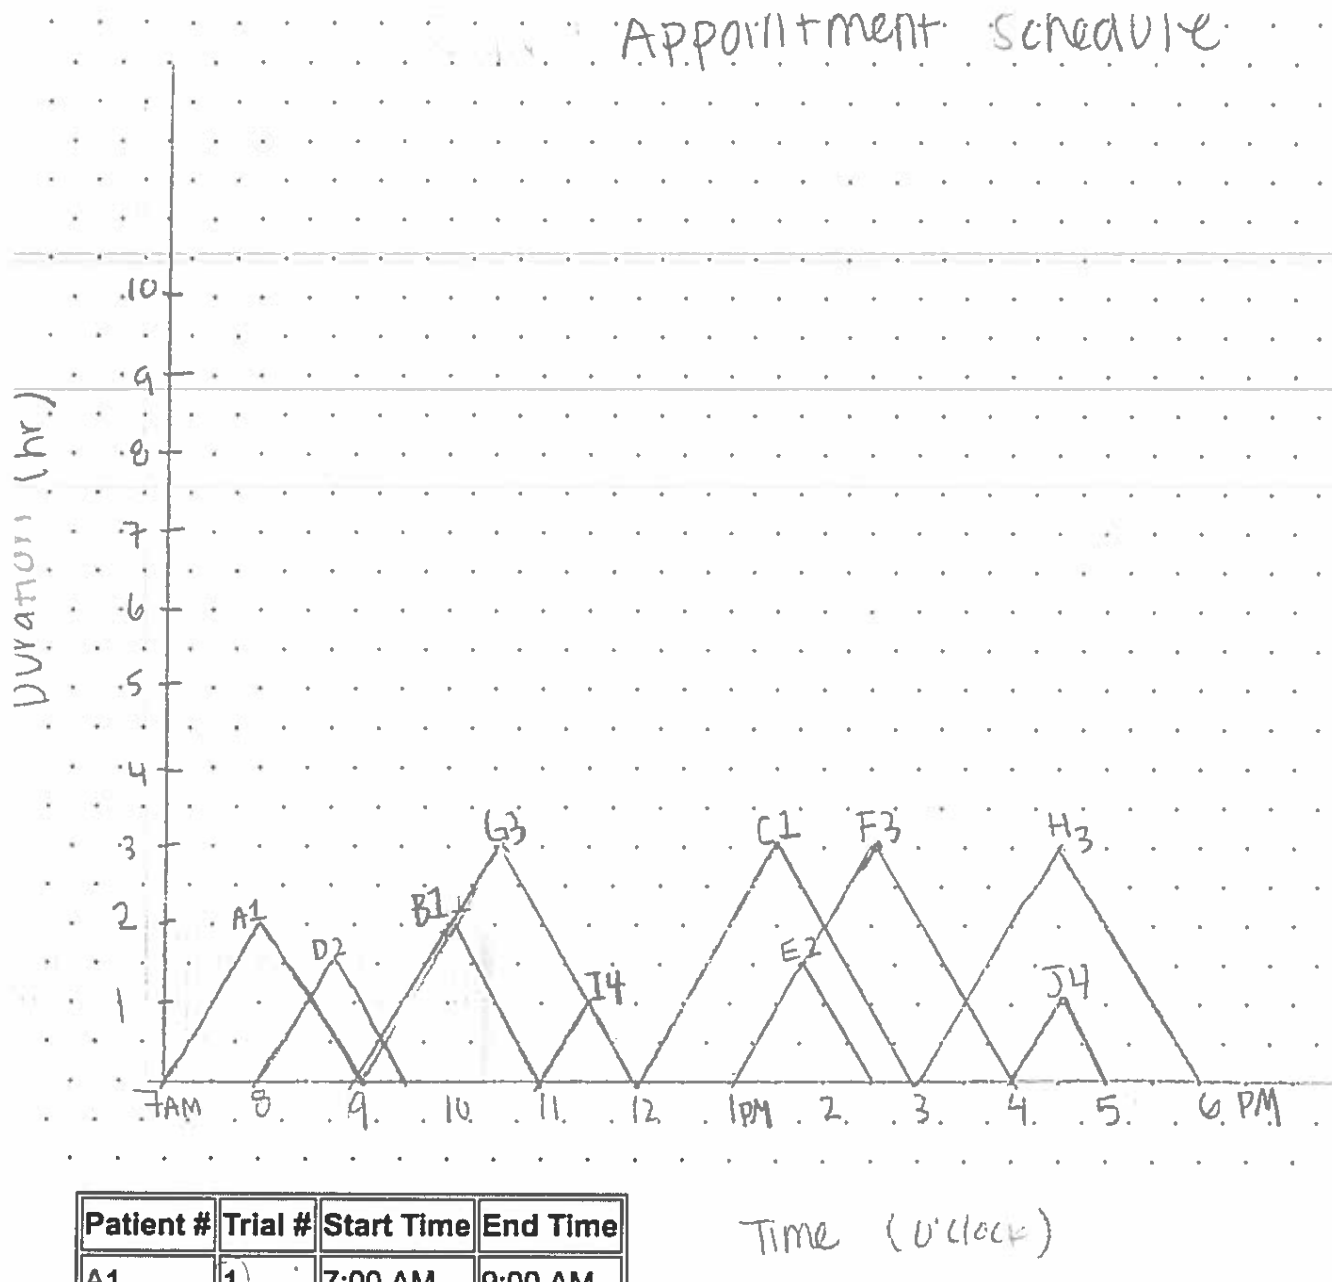 Appointment Schedule
10
9
8
7
6
5
4
3
2
1
Duration (hr)
A1
D2
B1
G3
I4
C1
F3
E2
H3
J4
7AM 8 9 10 11 12 1PM 2 3 4 5 6 PM
Time (o'clock)
Patient # Trial # Start Time End Time
A1 1 7:00 AM 9:00 AM